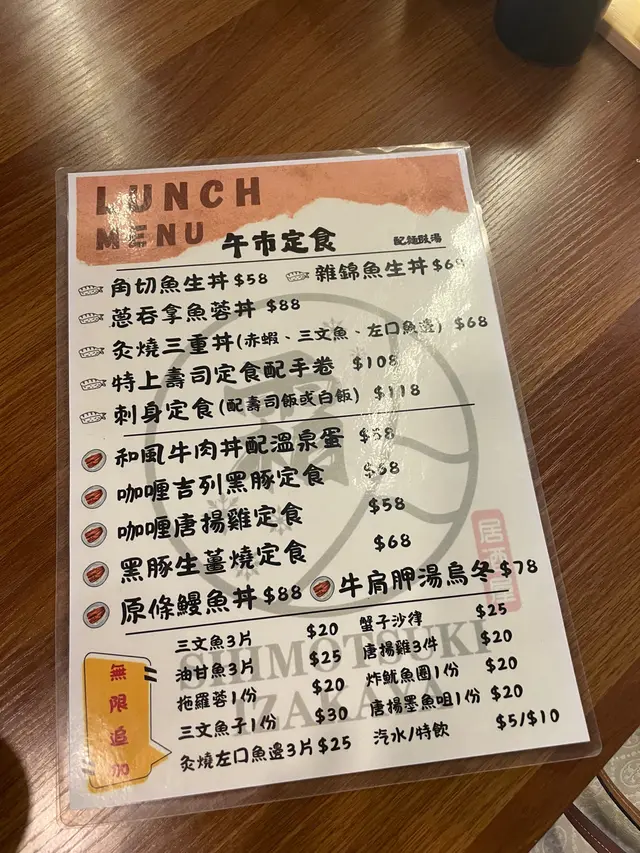 LUNCH
MENU 午市定食 配麵豉湯
角切魚生丼 $58 雜錦魚生丼 $68
蔥吞拿魚蓉丼 $88
炙燒三重丼(赤蝦、三文魚、左口魚邊) $68
特上壽司定食配手卷 $108
刺身定食(配壽司飯或白飯) $118
和風牛肉丼配溫泉蛋 $58
咖喱吉列黑豚定食 $68
咖喱唐揚雞定食 $58
黑豚生薑燒定食 $68
原條鰻魚丼 $88 牛肩胛湯烏冬 $78
居酒屋
SHIMOTSUKI
IZAKAYA
無限追加
三文魚3片 $20 蟹子沙律 $25
油甘魚3片 $25 唐揚雞3件 $20
拖羅蓉1份 $20 炸魷魚圈1份 $20
三文魚子1份 $30 唐揚墨魚咀1份 $20
炙燒左口魚邊3片 $25 汽水/特飲 $5/$10